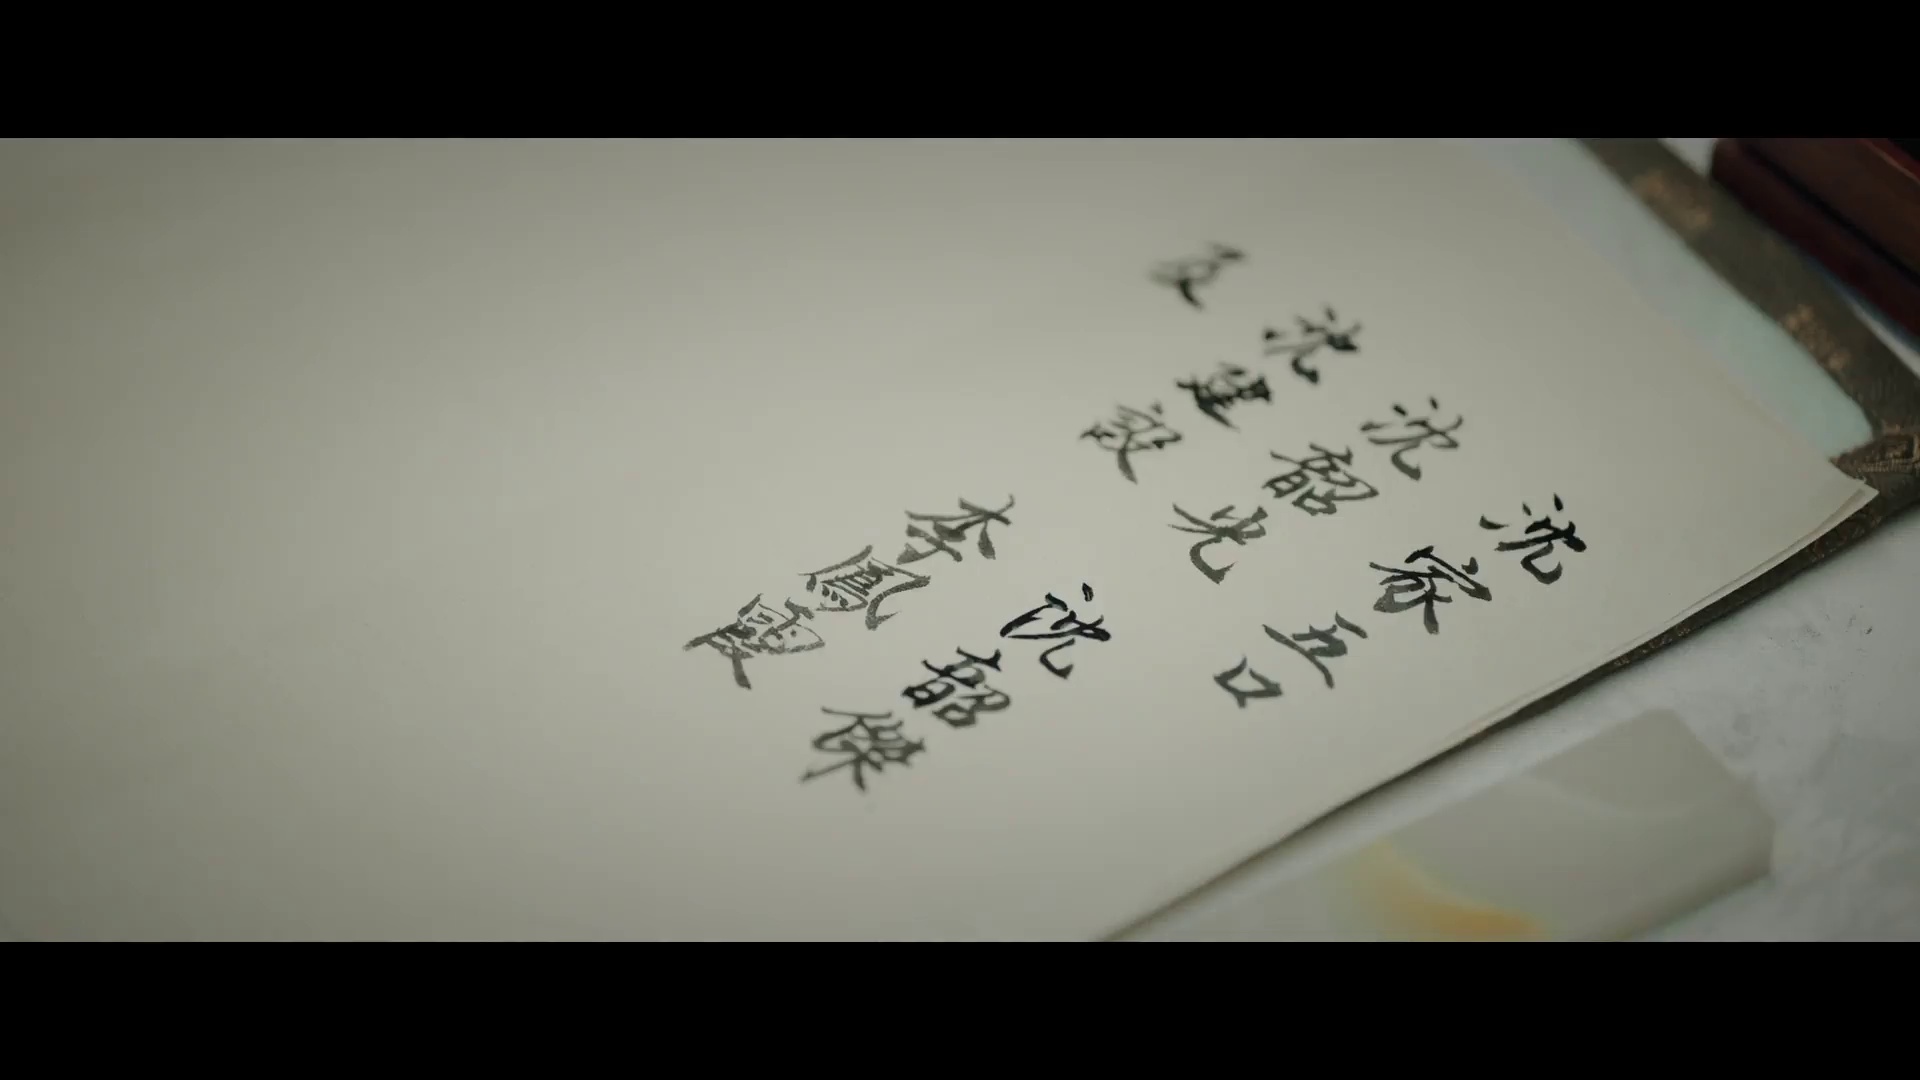 沈家五口
沈韶光 沈韶傑
沈 李鳳霞